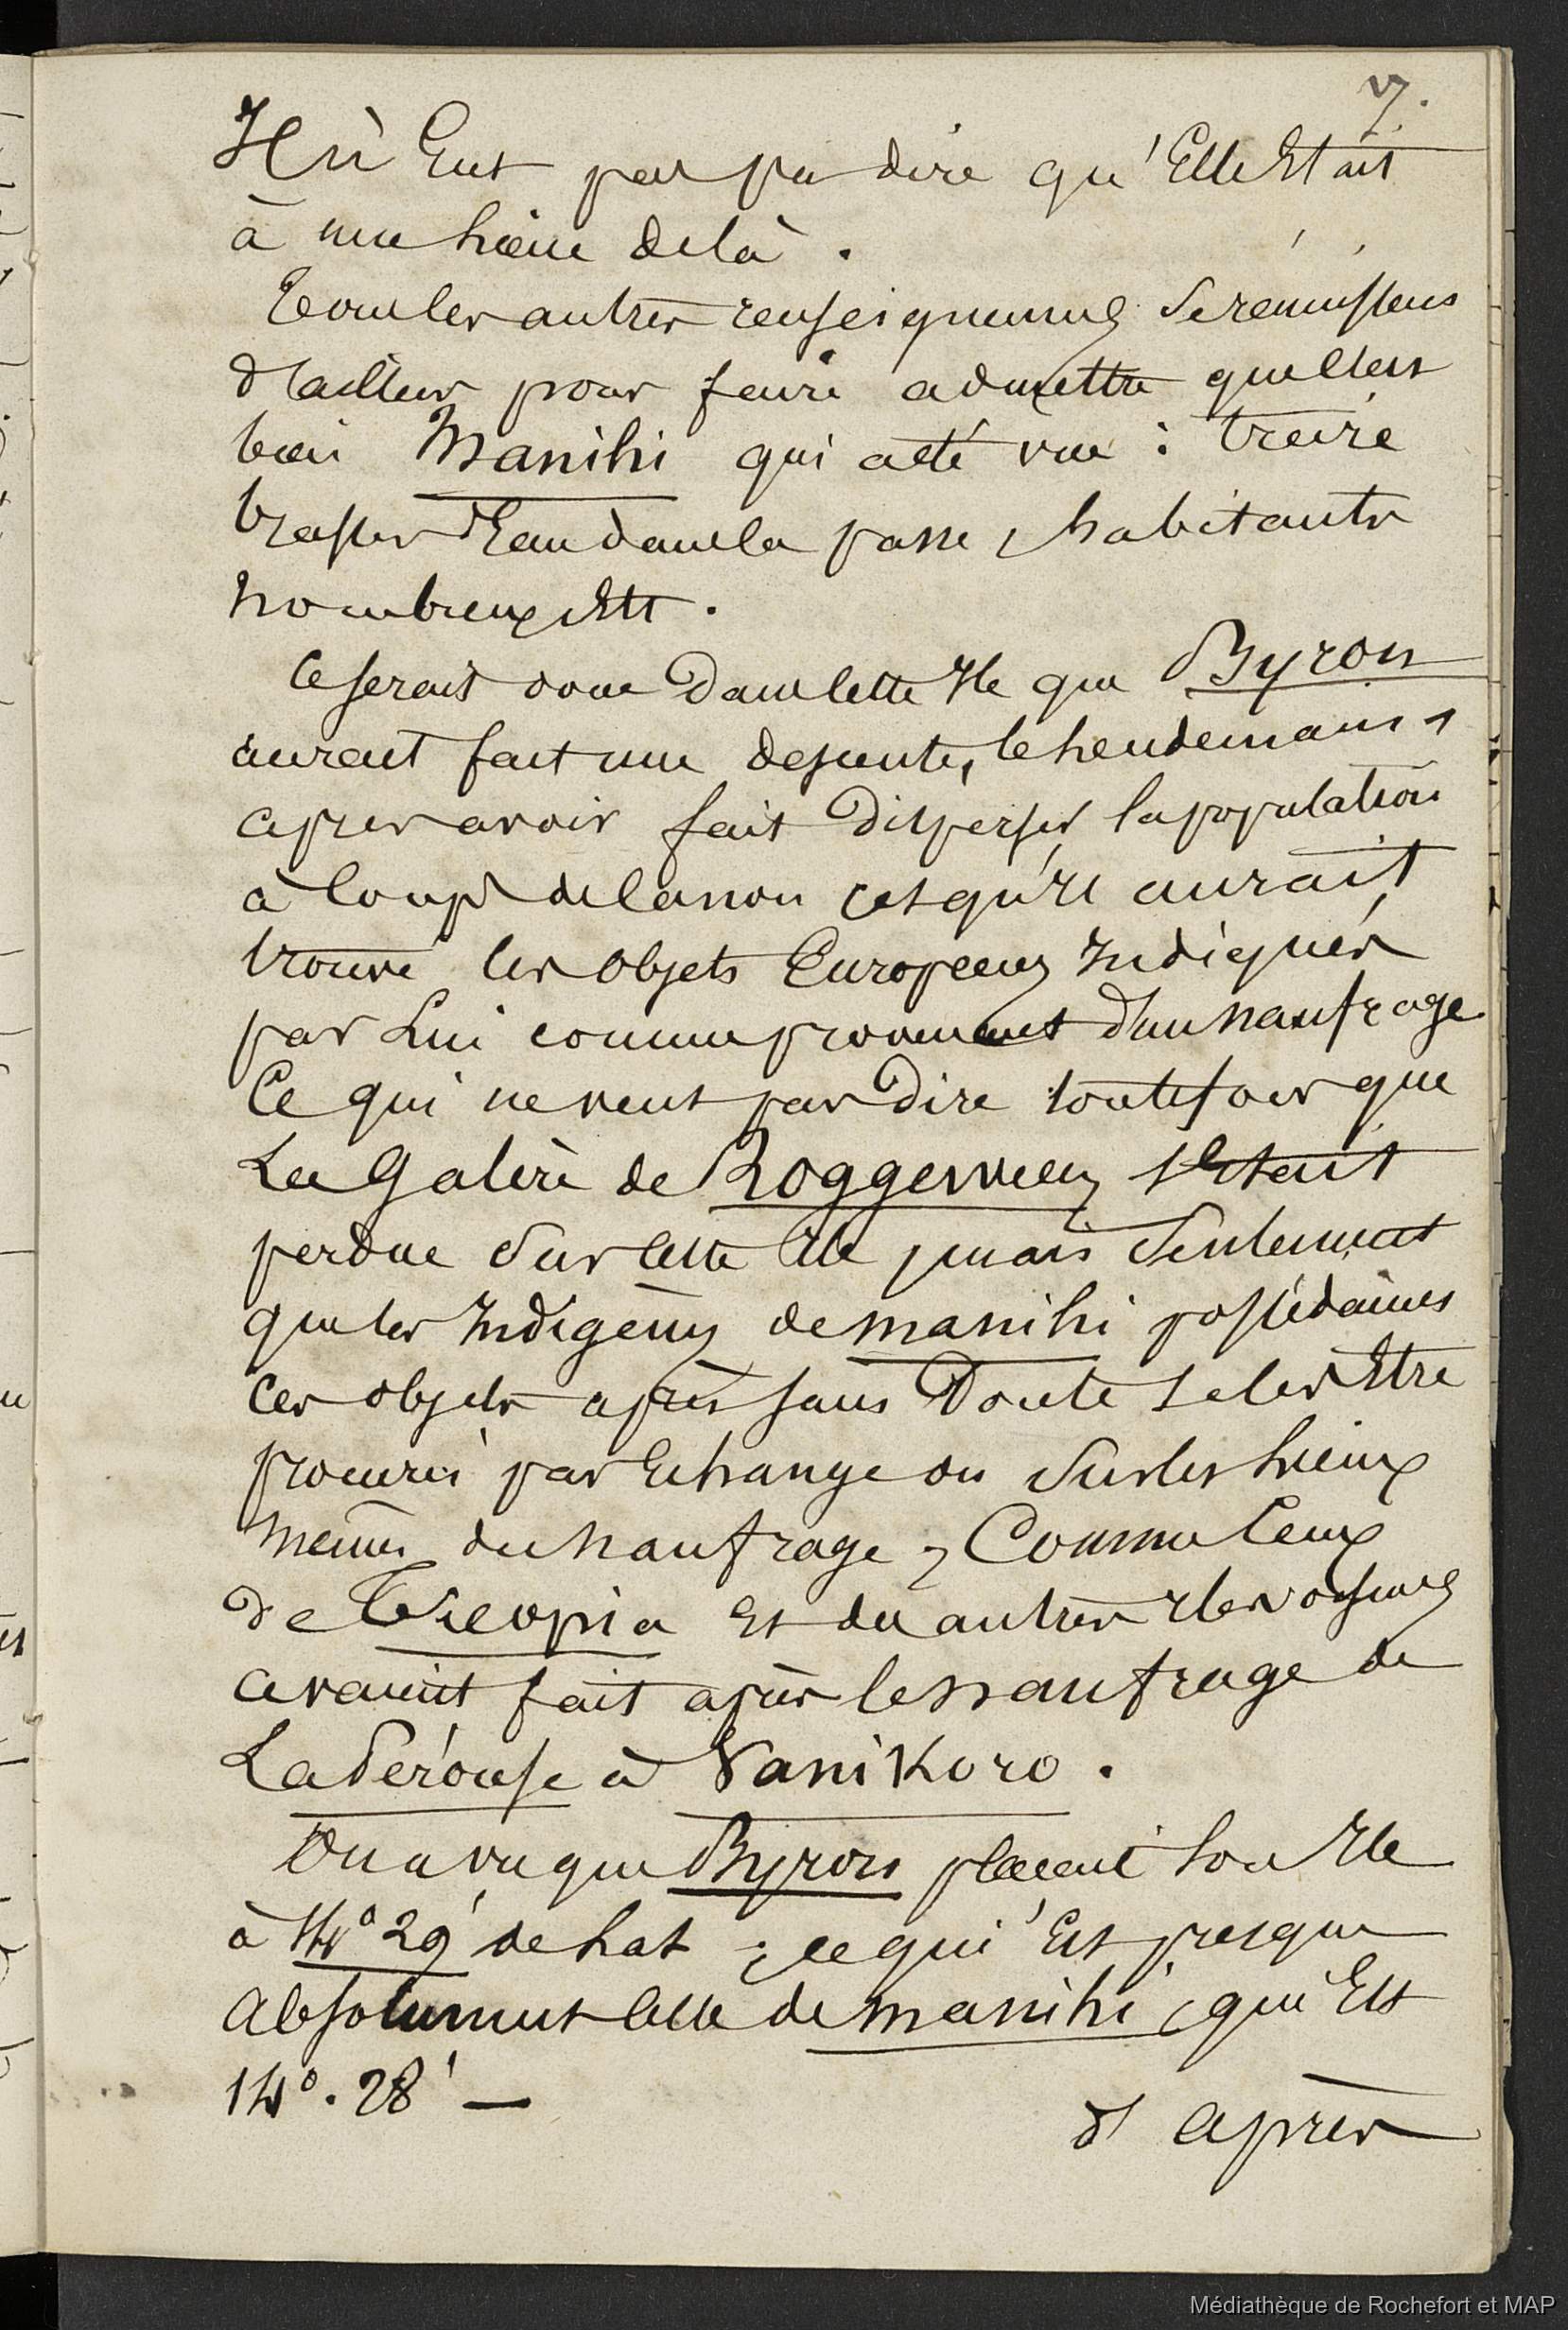 7.
Il n'Eut pas pu dire qu'Elle Etait
à une lieue delà .
Tous les autres renseignemens se réunissens
d'ailleurs pour faire admettre que c'est
bien Manihi qui a été vue : treize
brasses d'Eau dans la passe, habitants
nombreux, Ett .
Ce serait donc dans cette Ile que Byron
aurait fait une descente, le lendemain,
après avoir fait disperser la population
à coups de canon c'est qu'Il aurait
trouvé les Objets Européens Indiqués
par Lui comme provenant d'un naufrage
Ce qui ne veut pas dire toutefois que
La Galère de Roggeween s'Etait
perdue sur cette Ile, mais seulement
que les Indigènes de manihi possédaient
ces objets après sans doute se les Etre
procurés par Echange ou sur les Lieux
mêmes du naufrage, Comme Ceux
de Tucopia Et des autres Iles voisines
avaient fait après le naufrage de
La Pérouse à Vanikoro .
On a vu que Byron plaçait son Ile
à 14° 29' de Lat ; ce qui Est presque
absolument celle de manihi, qui Est
14° . 28' —
d'après
Médiathèque de Rochefort et MAP